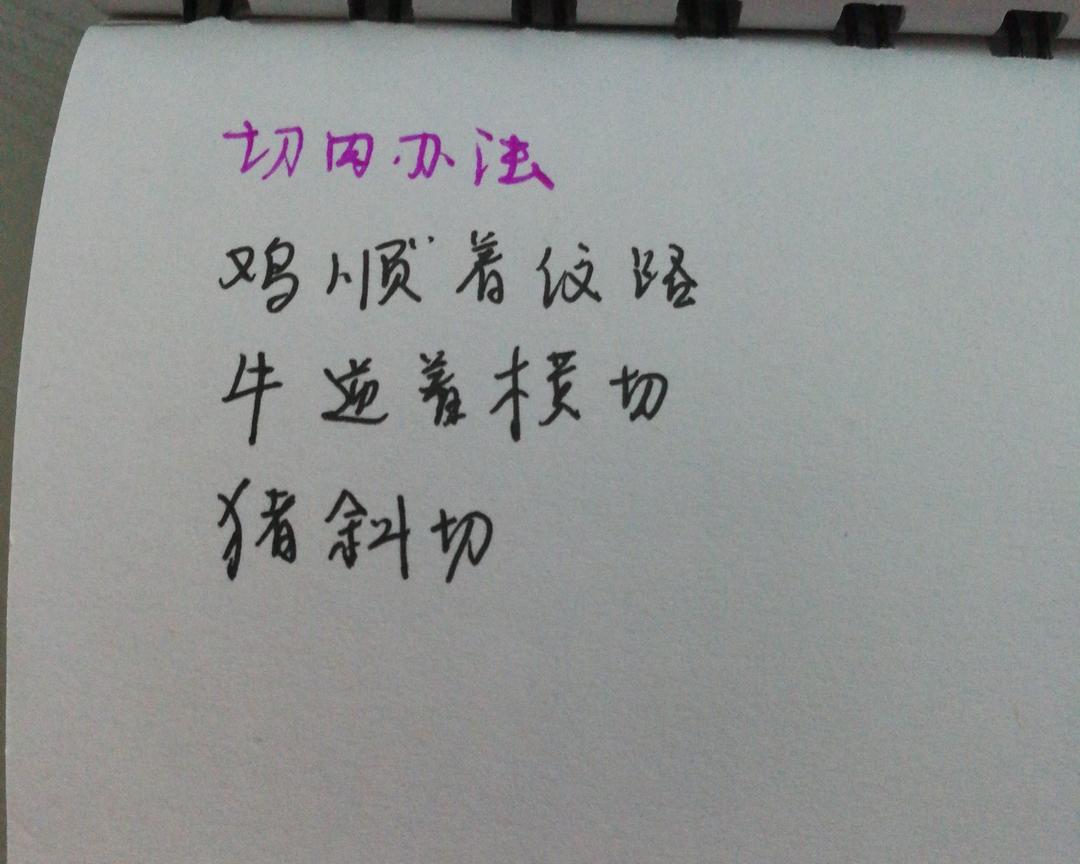 切肉办法
鸡顺着纹路
牛逆着横切
猪斜切